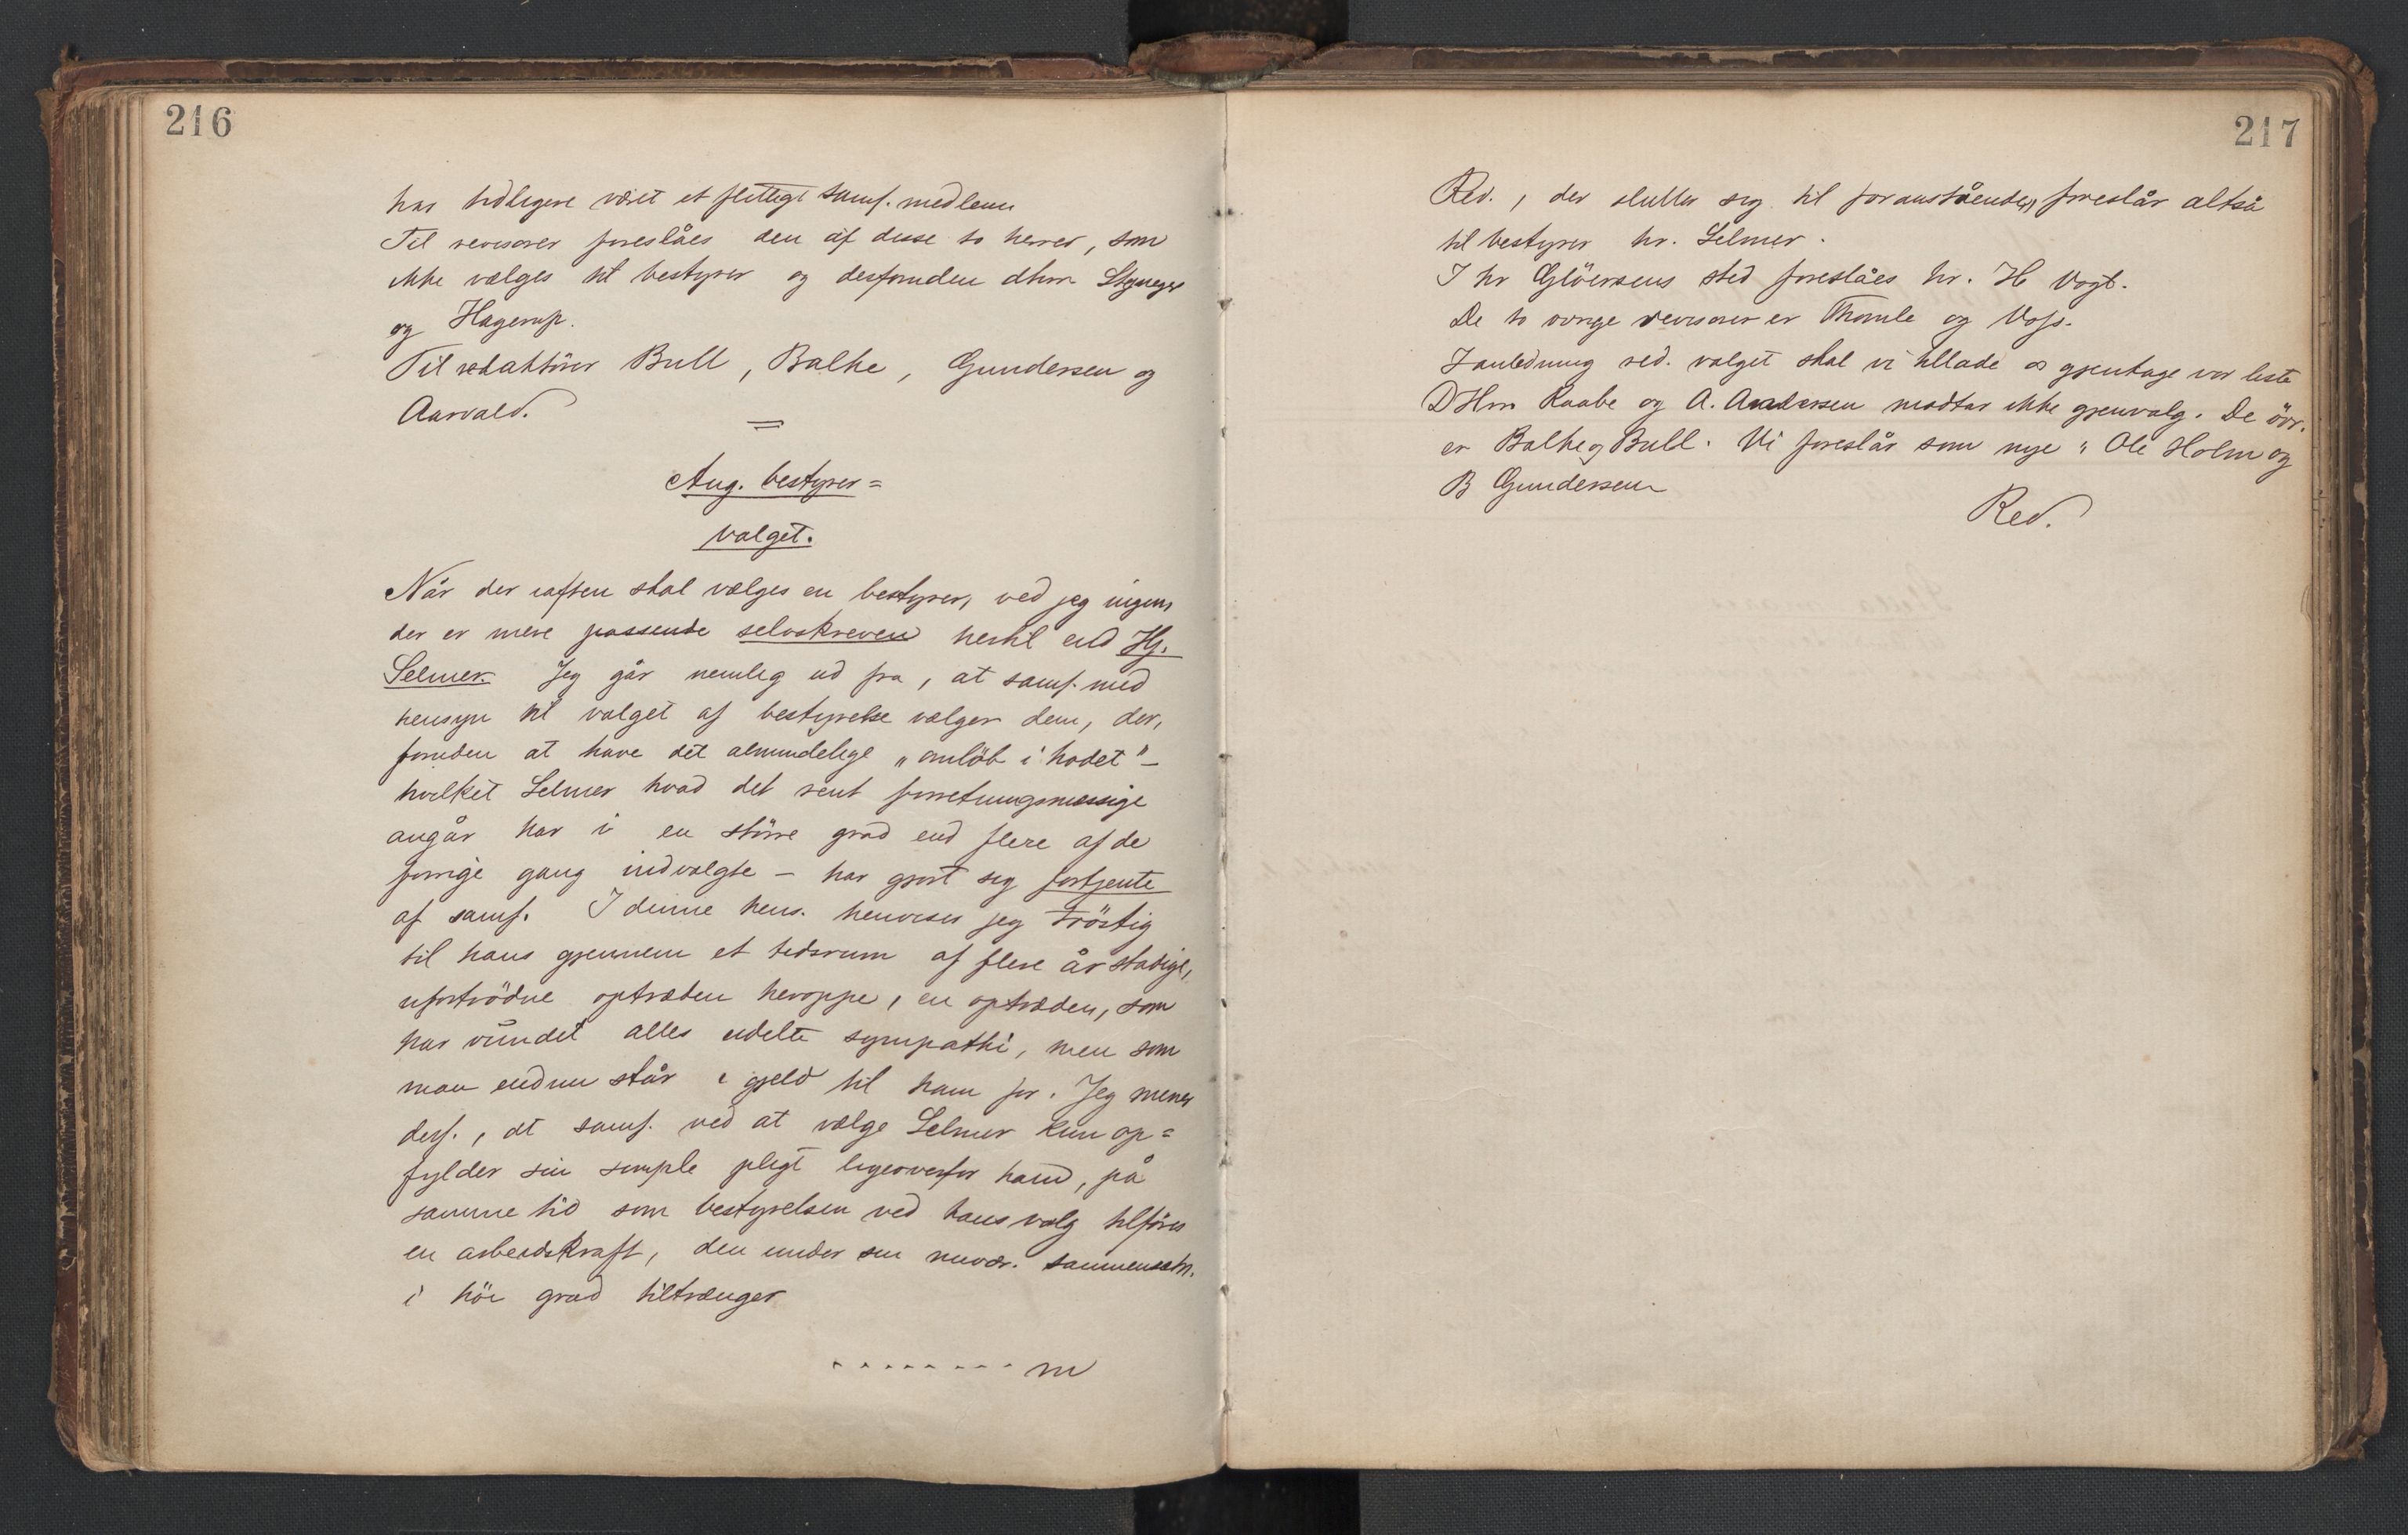 216
har tidligere været et flittigt samf. medlem
Til revisorer foreslåes den af disse to herrer, som
ikke vælges til bestyrer og desforuden dhrr
og Hagerup.
Til redaktörer Bull, Balke, Gundersen og
Aarvald.
=
Ang. bestyrer=
valget.
Når der iaften skal vælges en bestyrer, ved jeg ingen,
der er mere passende selvskreven hertil end Hj.
Selmer. Jeg går nemlig ud fra, at samf. med
hensyn til valget af bestyrelse vælger dem, der,
foruden at have det almindelige „omlöb i hodet" –
hvilket Selmer hvad det rent forretningsmæssige
angår har i en större grad end flere af de
forrige gang indvalgte – har gjort sig fortjente
af samf. I denne hens. henviser jeg tröstig
til hans gjennem et tidsrum af flere år stadige,
ufortrödne optræden heroppe, en optræden, som
har vundet alles udelte sympathi, men som
man endnu står i gjeld til ham for. Jeg mener
derf., at samf. ved at vælge Selmer kun op=
fylder sin simple pligt ligeoverfor ham, på
samme tid som bestyrelsen ved hans valg tilföres
en arbeidskraft, den under sin nuvær. sammensætn.
i höi grad tiltrænger
- - - - - - - - m
217
Red., der slutter sig til foranstående, foreslår altså
til bestyrer hr. Selmer.
I hr Glöersens sted foreslåes hr. H Vogt.
De to övrige revisorer er Thomle og Voss.
I anledning red. valget skal vi tillade os gjentage vor liste
DHrr Raabe og A. Andersen modtar ikke gjenvalg. De övr.
er Balke og Bull. Vi foreslår som nye: Ole Holm og
B Gundersen
Red.